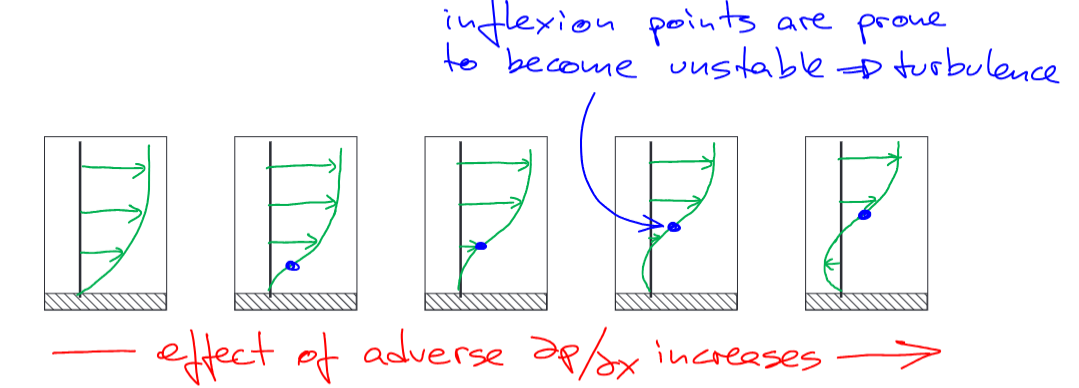 inflexion points are prone
to become unstable ⇒ turbulence
effect of adverse ∂p/∂x increases